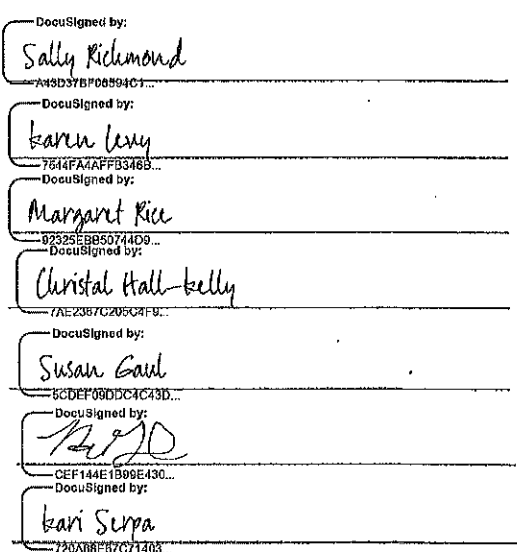 DocuSigned by:
Sally Richmond
DocuSigned by:
Karen Levy
7644FA4AFFB346B...
DocuSigned by:
Margaret Rice
92325EBB50744D9...
DocuSigned by:
Christal Hall-Kelly
7AE2387C205C4F9...
DocuSigned by:
Susan Gaul
5CDEF09DDC4C43D...
DocuSigned by:
CEF144E1B99E430...
DocuSigned by:
Kari Serpa